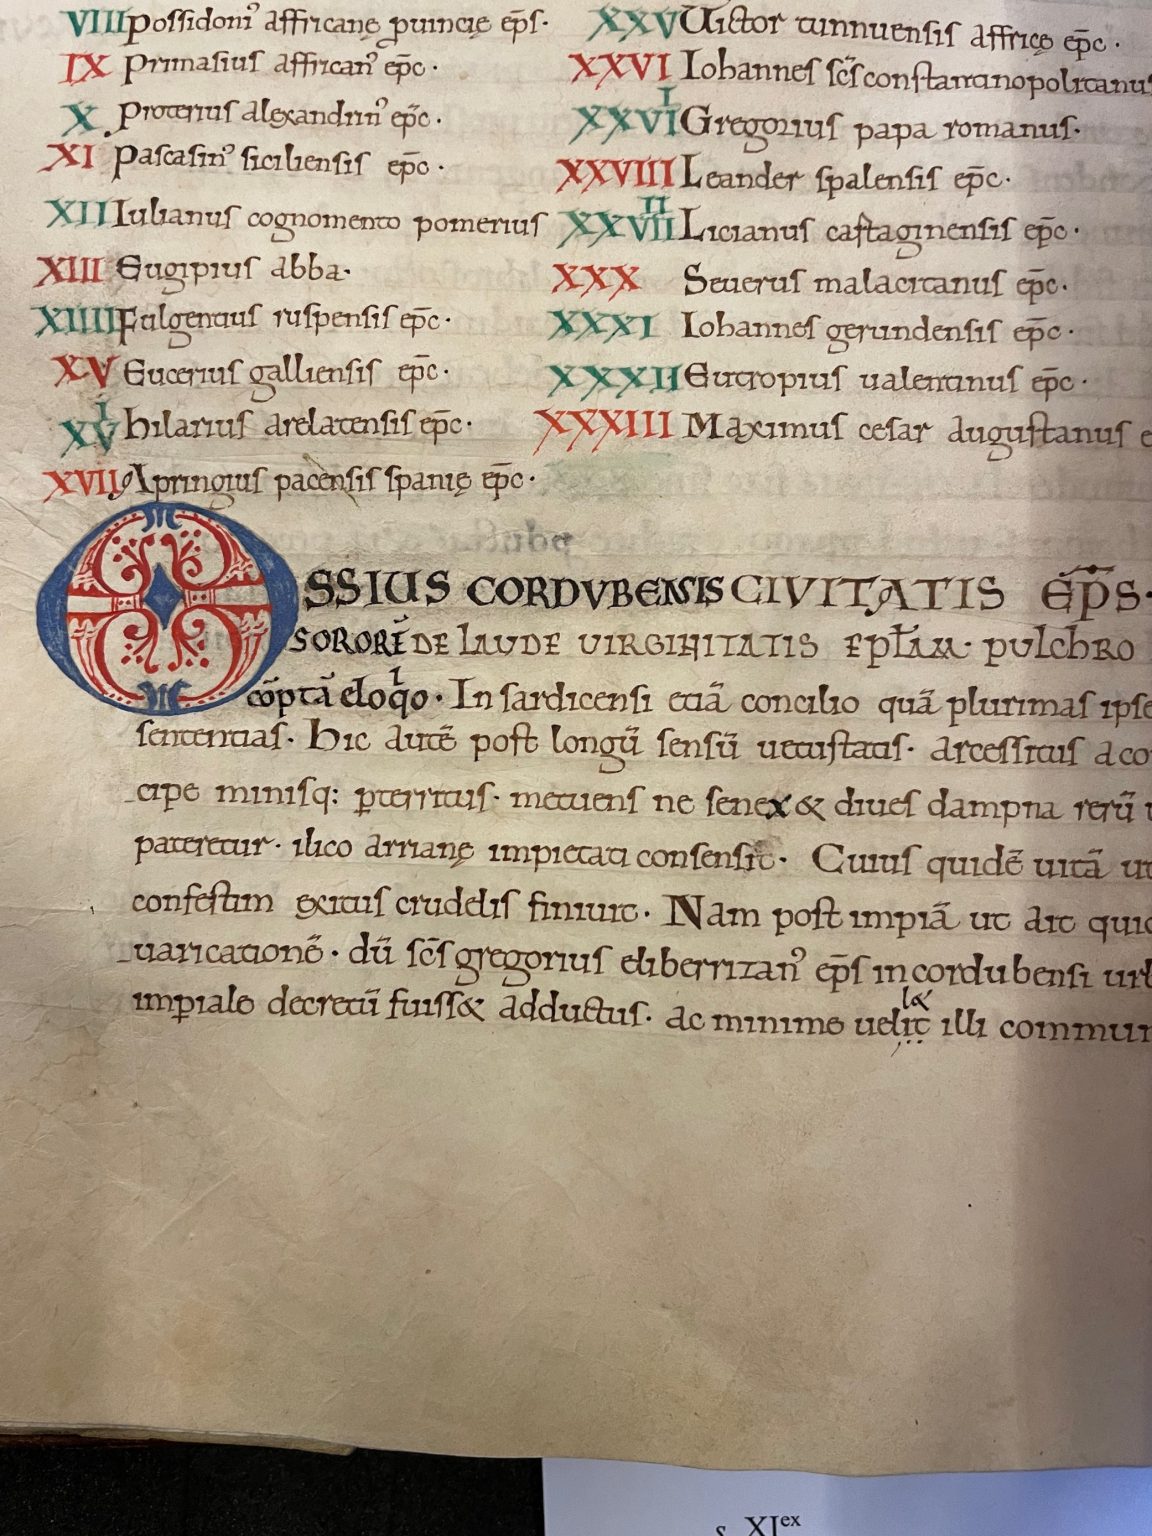 VIII Possidoni᾽ affricanę ꝓuincię ep̄s·
IX Primasius affrican᾽ ep̄c·
X Proterius alexandrin᾽ ep̄c·
XI Pascasin᾽ siciliensis ep̄c·
XII Iulianus cognomento pomerius
XIII Eugipius abba·
XIIII Fulgentius ruspensis ep̄c·
XV Eucerius galliensis ep̄c·
XVI hilarius arelatensis ep̄c·
XVII Apringius pacensis spanię ep̄c·
XXV Uictor tunnuensis affricę ep̄c·
XXVI Iohannes sc̄s constantinopolitanus
XXVII Gregorius papa romanus·
XXVIII Leander spalensis ep̄c·
XXVIIII Licianus castaginensis ep̄c·
XXX Seuerus malacitanus ep̄c·
XXXI Iohannes gerundensis ep̄c·
XXXII Eutropius ualentinus ep̄c·
XXXIII Maximus cesar augustanus e
OSSIUS CORDVBENSIS CIVITATIS EP̄S·
SORORĒ DE LAUDE VIRGINITATIS EPLAM· PULCHRO
cōptā eloqͥo· In sardicensi etiā concilio quā plurimas ipse
sententias· Hic autē post longū sensū uetustatis· arcessitus a co
cipe minisq: ꝑterritus· metuens ne senex & diues dampna rerū
pateretur· ilico arrianę impietati consensit· Cuius quidē uitā ut
confestim exitus crudelis finiuit· Nam post impiā ut ait quid
uaricationē· dū sc̄s gregorius eliberritan᾽ ep̄s in cordubensi urb
imꝑiale decretū fuiss& adductus· ac minime uelit l& illi commun
s. XIex